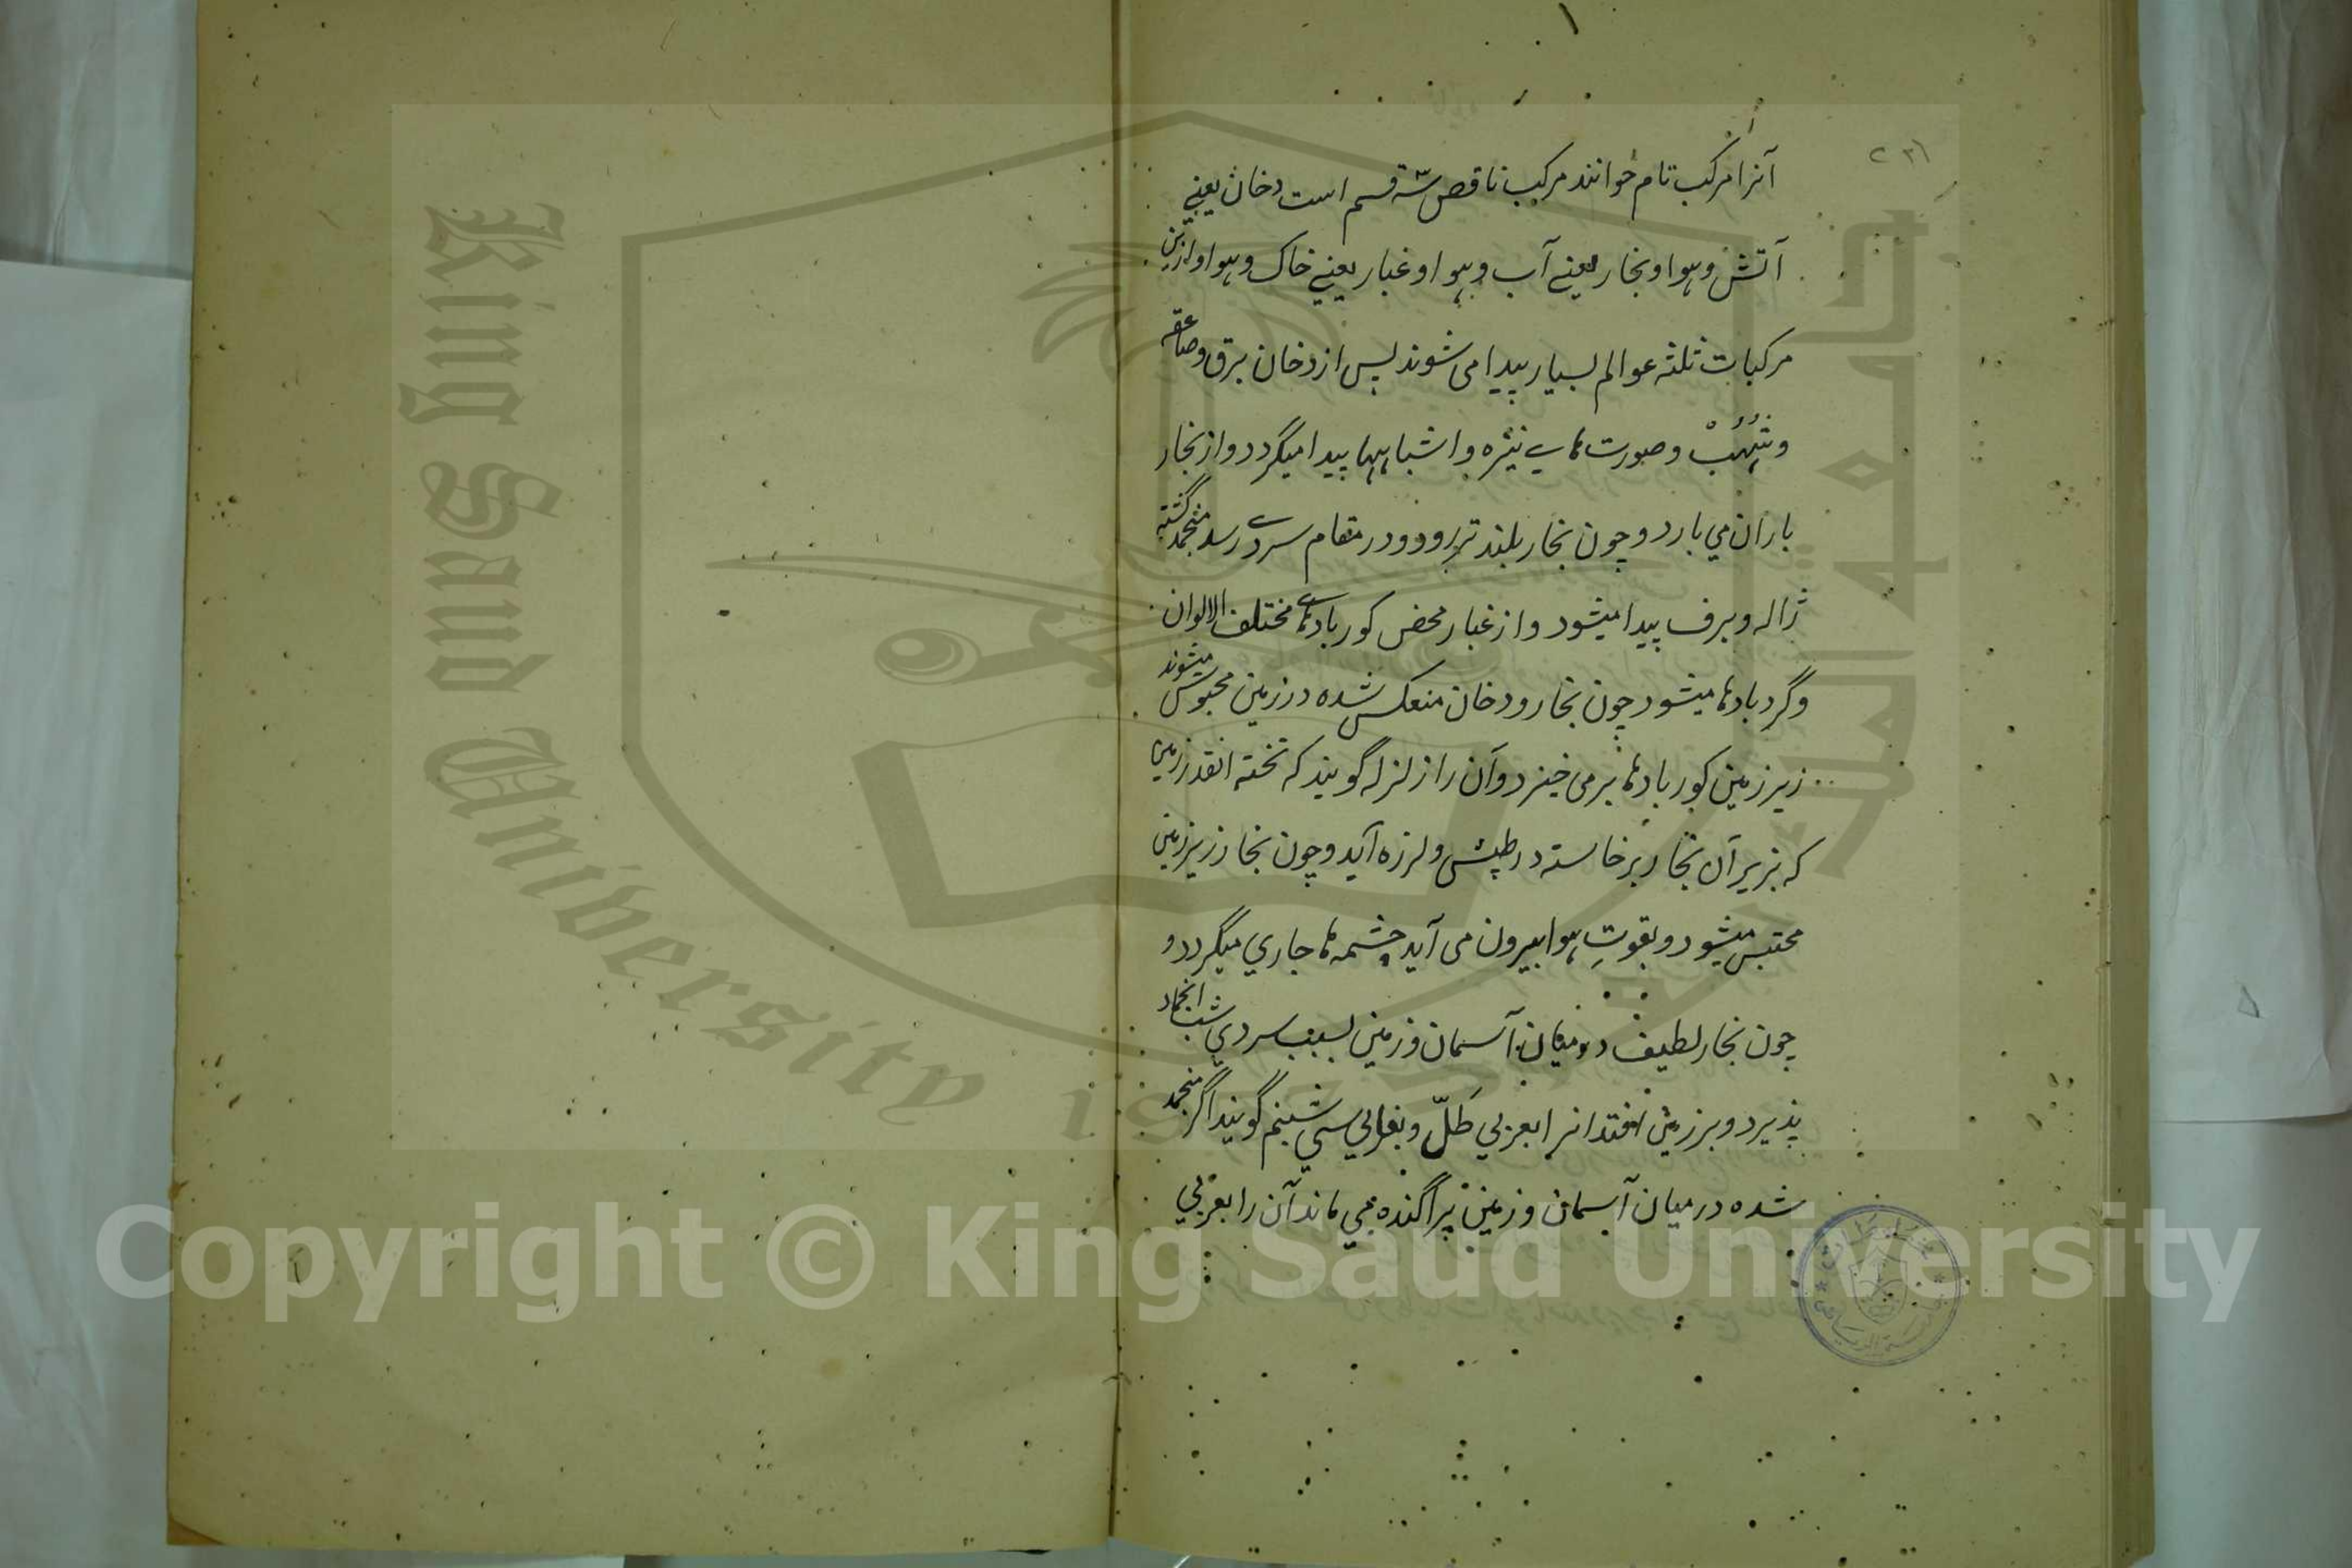 آنرا مرکب تام خوانند مرکب ناقص سه قسم است دخان یعنے
آتش و ہوا و بخار یعنے آب و ہوا و غبار یعنے خاک و ہوا و ازین
مرکبات ثلثہ عوالم بسیار پیدا می شوند پس از دخان برق و صاعقہ
و شُہُبْ و صورت ہاے نیزہ و اشباہہا پیدا میگردد و از بخار
باران می بارد و چون بخار بلند تر رود و در مقام سردے رسد منجمد گشتہ
ژالہ و برف پیدا میشود و از غبار محض کور بادہاے مختلف الالوان
و گردبادہا میشود چون بخار و دخان منعکس شدہ در زمین محبوس میشوند
زیر زمین کور بادہا برمی خیزد و آن را زلزلہ گویند کہ تختہ انقدر زمین
کہ بزیر آن بخار برخاستہ در طپش و لرزہ آید و چون بخار زیر زمین
محتبس میشود و بقوتِ ہوا بیرون می آید چشمہ ہا جاری میگردد و
چون بخار لطیف درمیان آسمان و زمین بسبب سردی شب انجماد
پذیرد و بر زمین افتد انرا بعربی طَلّ و بفارسی شبنم گویند اگر منجمد
شدہ درمیان آسمان و زمین پراگندہ می ماند آن را بعربی
King Saud University
Copyright © King Saud University